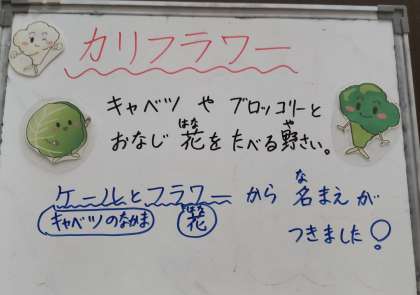 カリフラワー
キャベツ や ブロッコリーと
おなじ 花を たべる 野さい。
はな
や
ケールとフラワー から 名まえが
な
キャベツのなかま
花
はな
つきました！